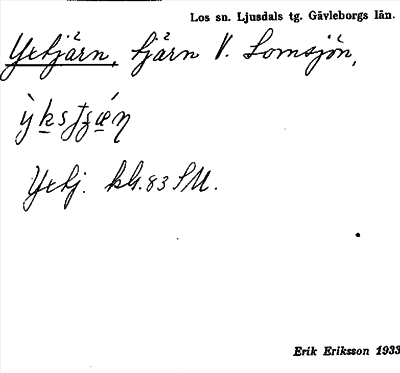 Los sn. Ljusdals tg. Gävleborgs län.
Yxtjärn, tjärn V. Lomsjön,
Yxtj. kbl. 83 SU.
Erik Eriksson 1933